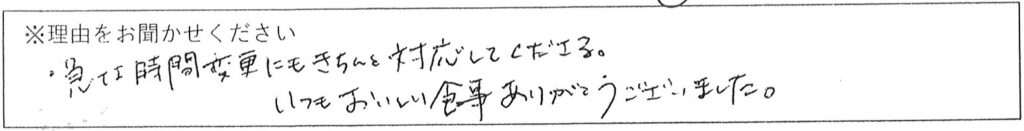 ※理由をお聞かせください
・急な時間変更にもきちんと対応してくださる。
いつもおいしい食事ありがとうございました。